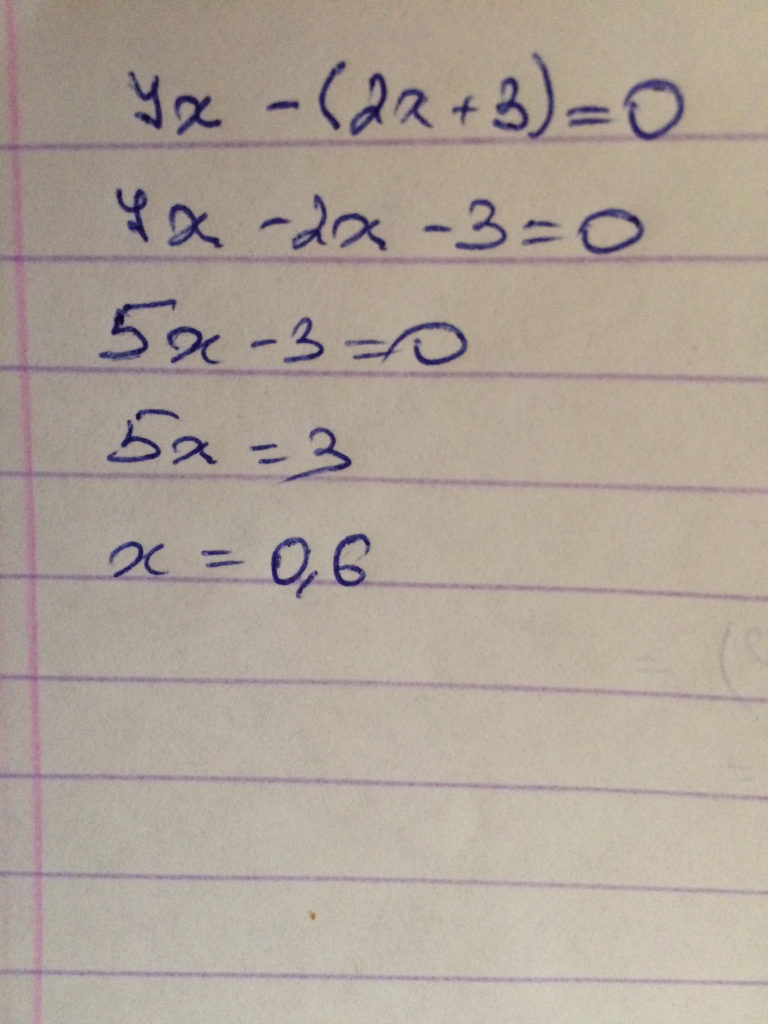 7x - (2x + 3) = 0
7x - 2x - 3 = 0
5x - 3 = 0
5x = 3
x = 0,6